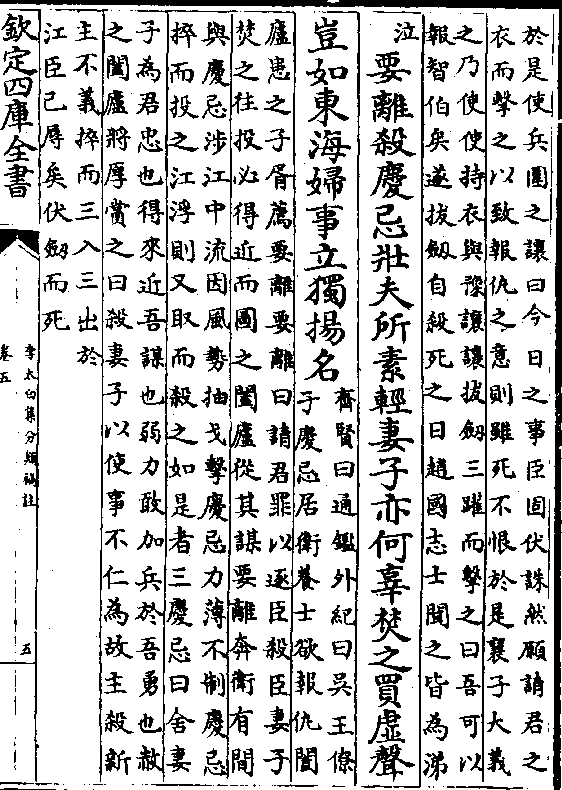 於是使兵圍之讓曰今日之事臣固伏誅然願請君之
衣而擊之以致報仇之意則雖死不恨於是襄子大義
之乃使使持衣與豫讓讓拔劔三躍而擊之曰吾可以
報智伯矣遂拔劔自殺死之日趙國志士聞之皆為涕
泣
要離殺慶忌壯夫所素輕妻子亦何辜焚之買虛聲
豈如東海婦事立獨揚名
齊賢曰通鑑外紀曰吳王僚
子慶忌居衛養士欲報仇闔
廬患之子胥薦要離要離曰請君罪以逐臣殺臣妻子
焚之往投必得近而圖之闔廬從其謀要離奔衛有間
與慶忌涉江中流因風勢抽戈擊慶忌力薄不制慶忌
捽而投之江浮則又取而殺之如是者三慶忌曰舍妻
子為君忠也得來近吾謀也弱力敢加兵於吾勇也赦
之闔廬將厚賞之曰殺妻子以使事不仁為故主殺新
主不義捽而三入三出於
江臣已辱矣伏劔而死
欽定四庫全書
李太白集分類補註
卷五
五